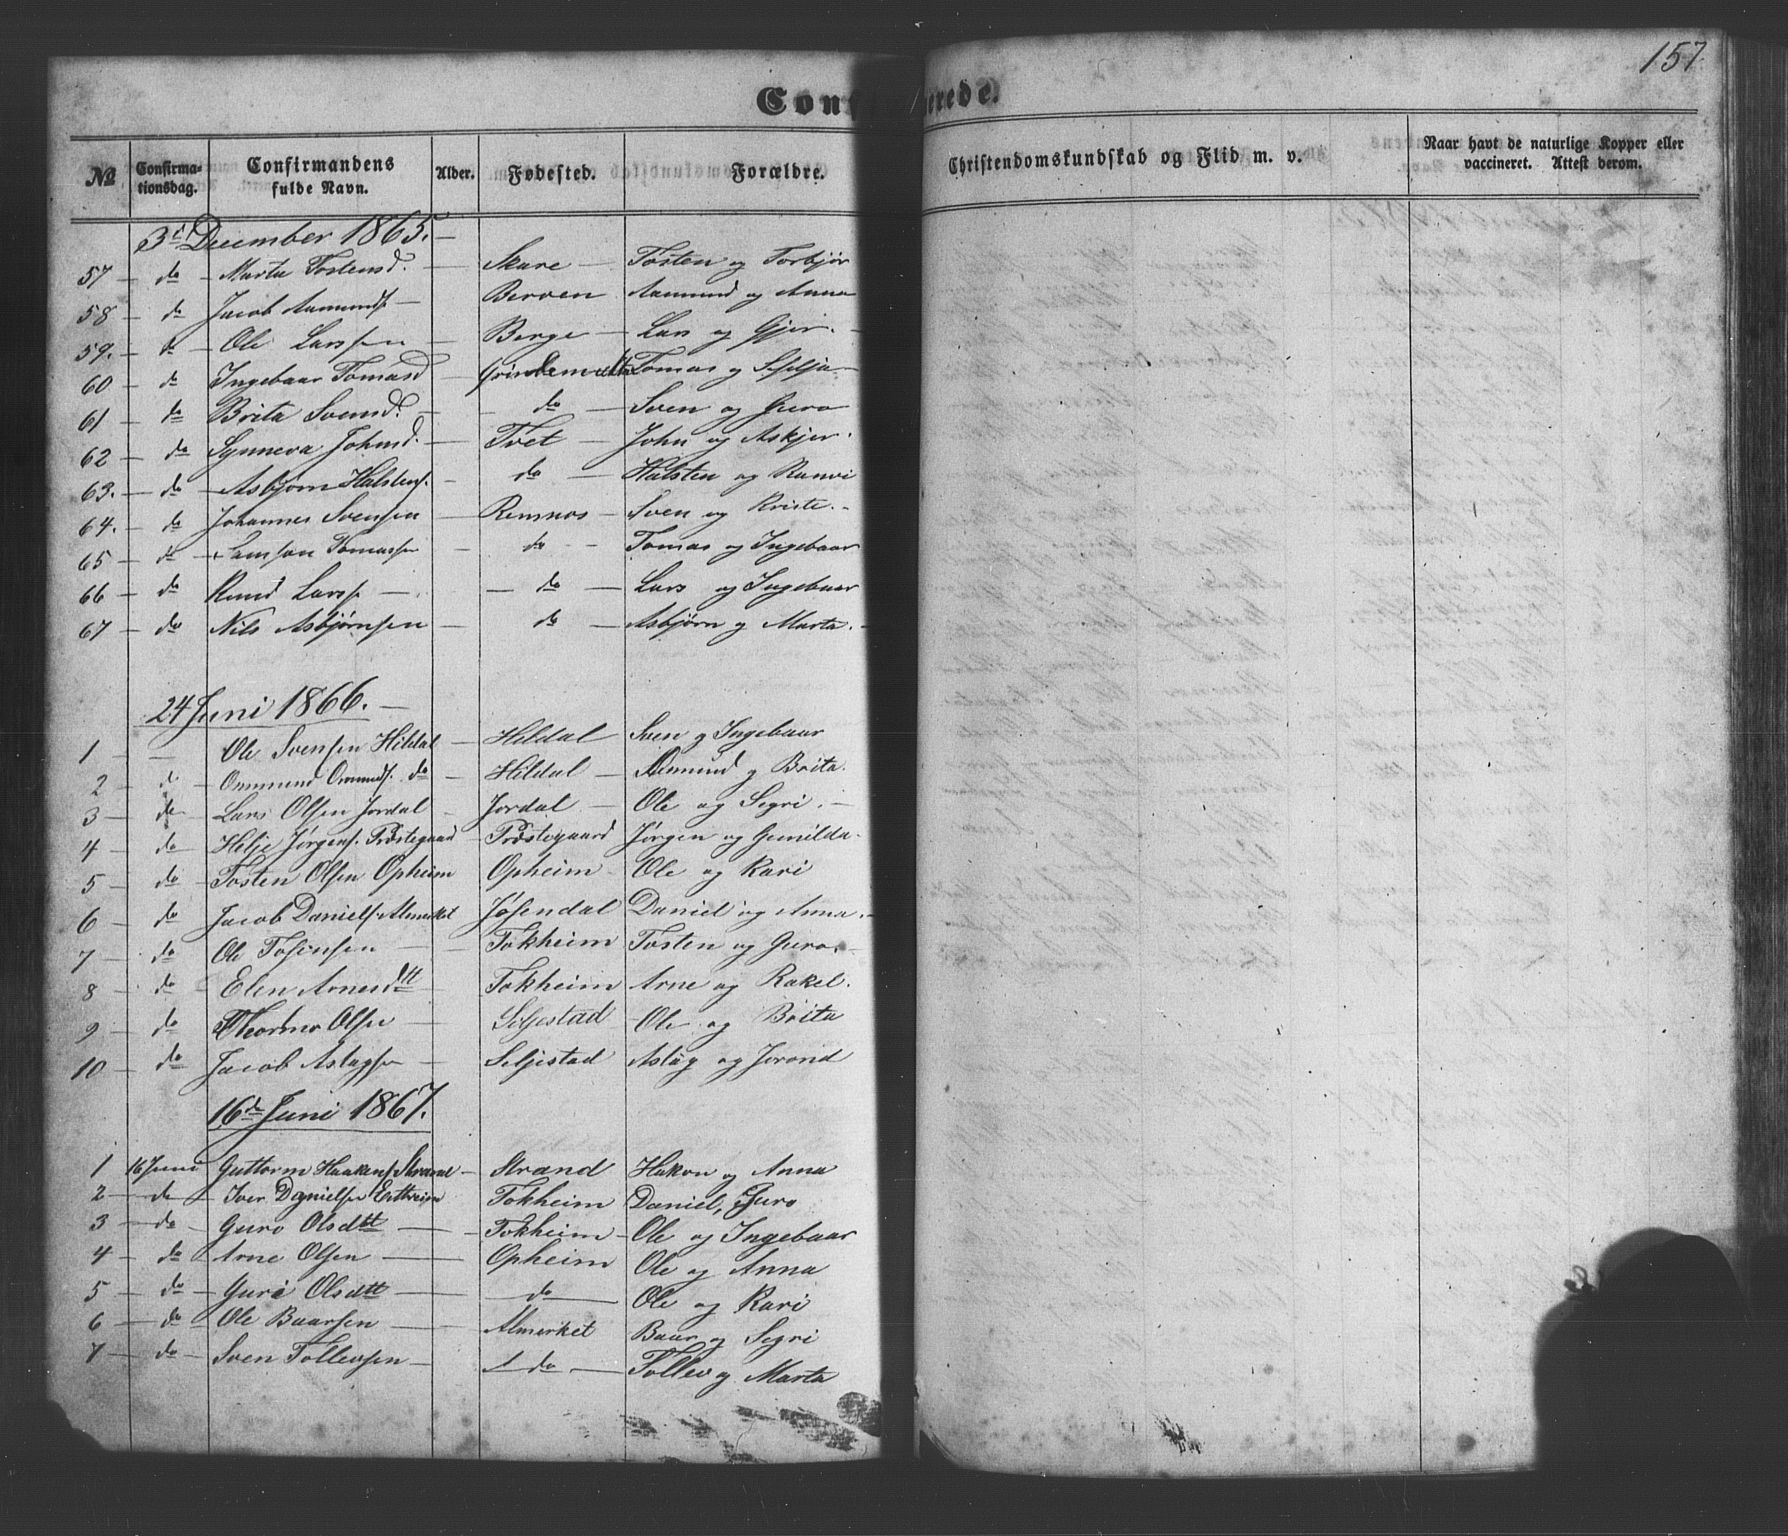 157
Confi erede.
№ Confirmationsdag. Confirmandens fulde Navn. Alder. Fødested. Forældre. Christendomskundskab og Flid m. v. Naar havt de naturlige Kopper eller vaccineret. Attest derom.
3d December 1865.
57 do Marta Tostensd. Skare Tosten og Torbjør
58 do Jacob Aamunds. Berven Aamund og Anna
59. do Ole Larssen Berge Lars og Gjer.
60 do Ingebaar Tomasd Tomas og Seselja
61 do Brita Svensd. do Sven og Guro
62 do Synneva Johnsd. Tvet John og Askjer.
63. do Asbjørn Halstens. do Halsten og Ranvi
64. do Johannes Svensen Rensnos Sven og Kriste.
65 do Samson Tomassen do Tomas og Ingebaar
66 do Knud Larss do Lars og Ingebaar
67 do Nils Asbjørnsen do Asbjørn og Marta.
24 Juni 1866.
1 Ole Svensen Hildal Hildal Sven og Ingebaar
2 do Ommund Ommunds. do Hildal Aamund og Brita.
3 do Lars Olsen Jordal Jordal Ole og Segri.
4 do Helje Jørgens. Prøstegaard Prøstegaard Jørgen og Gunilda.
5 do Tosten Olsen Opheim Opheim Ole og Kari
6 do Jacob Daniels. Almerket Jøsendal Daniel og Anna.
7 do Ole Tostensen Tokheim Tosten og Guro.
8 do Elen Arnesdtt Tokheim Arne og Rakel.
9 do Thormo Olsen Seljestad Ole og Brita
10 do Jacob Aslagsen Seljestad Aslag og Jorond
16de Juni 1867.
1 16 Juni Guttorm Haakens. Strand Strand Hakon og Anna
2 do Iver Danielsen Eitrheim Tokheim Daniel, Guro
3 do Guro Olsdtt Tokheim Ole og Ingebaar
4 do Arne Olsen Opheim Ole og Anna
5 do Guri Olsdtt do Ole og Kari
6 do Ole Baarsen Almerket Baar og Segri
7 do Sven Tollevsen do Tollev og Marta